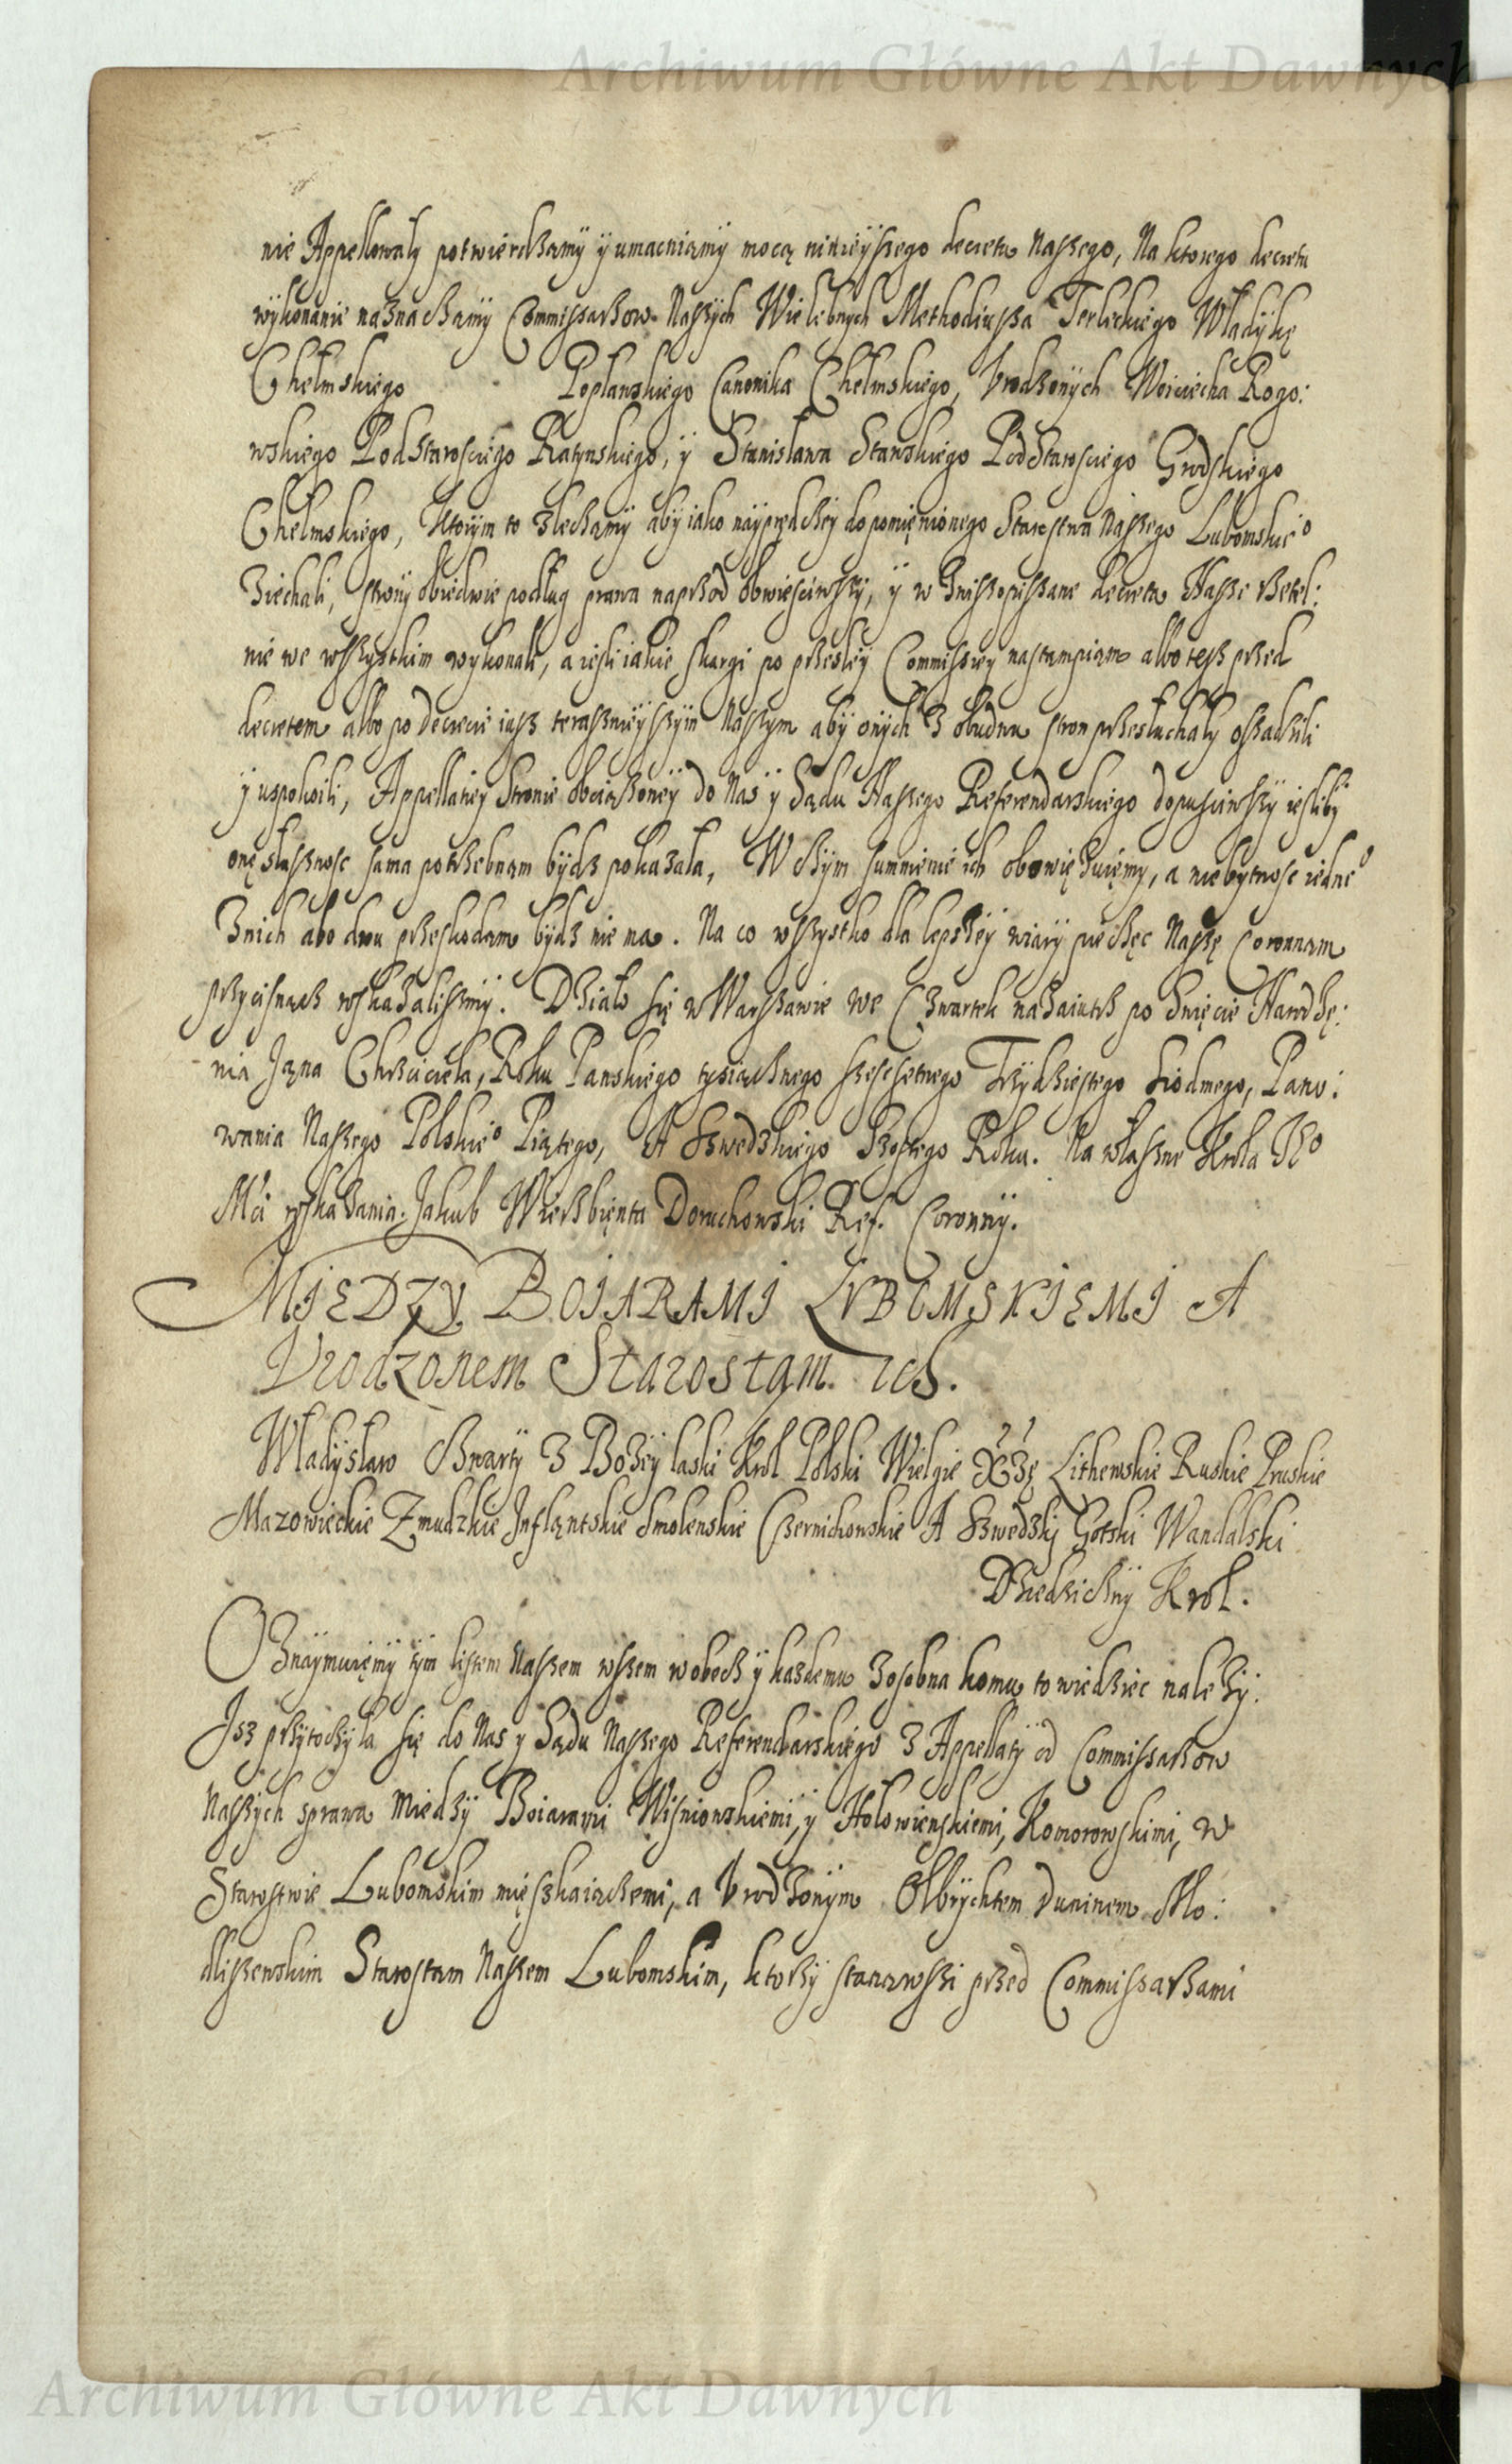 Archiwum Główne Akt Dawnych
nie Appellowały potwierdzamy y umacniamy mocą ninieyszego decretu Naszego, Na ktorego decretu
wykonanie naznaczamy Commissarzow Naszych Wielebnych Methodiusza Terleckiego Władykę
Chełmskiego Poplawskiego Canonika Chełmskiego, Vrodzonych Woiciecha Rogo:
wskiego Podstarosciego Ratynskiego, y Stanisława Stawskiego Podstarosciego Grodskiego
Chełmskiego, Ktorym to zlecamy aby iako nayprędzey do pomięnionego Starostwa Naszego Lubomskieo
Ziechali, strony obiedwie podług prawa naprzod obwiesciwszy, y w Zwisz opissane decreta Nasze rzetel:
nie we wszystkim wykonali, a iesli iakie skargi po przeszłey Commissiey nastąmpiąm albo tesz przed
decretem albo po decrecie iusz teraznieyszym Naszym aby onych z obudwu stron przesłuchały osządzili
y uspokoili, Appellatiey Stronie obciążoney do Nas y Sądu Naszego Referendarskiego dopusciwszy iesliby
onę słusznosc sama potrzebnam bydz pokazała, W czym summienie ich obowięzuięmy, a niebytnosc iedneo
Znich abo dwu przeskodam bydz nie ma. Na co wszystko dla lepszey wiary pieczęc Naszę Coronnam
przycisnącz roskazalismy. Działo się w Warszawie we Czwartek nazaiutrz po Swięcie Narodzę:
nia Jana Chrzciciela, Roku Panskiego tysiącznego szescsetnego Trzydziestego siodmego, Pano:
wania Naszego Polskieo Piątego, A Szwedzkiego Szostego Roku. Na własne Krola Jeo
Mci roskazania. Jakub Wierzbięnta Doruchowski Ref. Coronny.
MIEDZY BOIARAMI LVBOMSKIEMI A
Vrodzonem Starostąm ich.
Władysław Czwarty z Bozey laski Krol Polski Wielgie Xzę Lithewskie Ruskie Pruskie
Mazowieckie Zmudzkie Inflantskie Smolenskie Czernichowskie A Szwedzkj Gotski Wandalski
Dziedziczny Krol.
Oznaymuięmy tym listem Naszem wszem wobecz y kazdemu zosobna komu to wiedziec nalezy:
Isz przytoczyła się do Nas y Sądu Naszego Referendarskiego z Appellaty od Commissarzow
Naszych sprawa miedzy Boiarami Wisniowskiemi, y Hołowienskiemi, Komorowskimi, w
Starostwie Lubomskim mięszkaiączemi, a Vrodzonym Olbrychtem Duninem Mo:
dliszewskim Starostam Naszem Lubomskim, ktorzy stanąwszi przed Commissarzami
Archiwum Główne Akt Dawnych